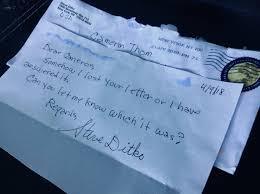 Cameron Thom
NEW YORK NY 100
4/9/18
Dear Cameron,
Somehow I lost your letter or I have
answered it.
Can you let me know which it was?
Regards,
Steve Ditko